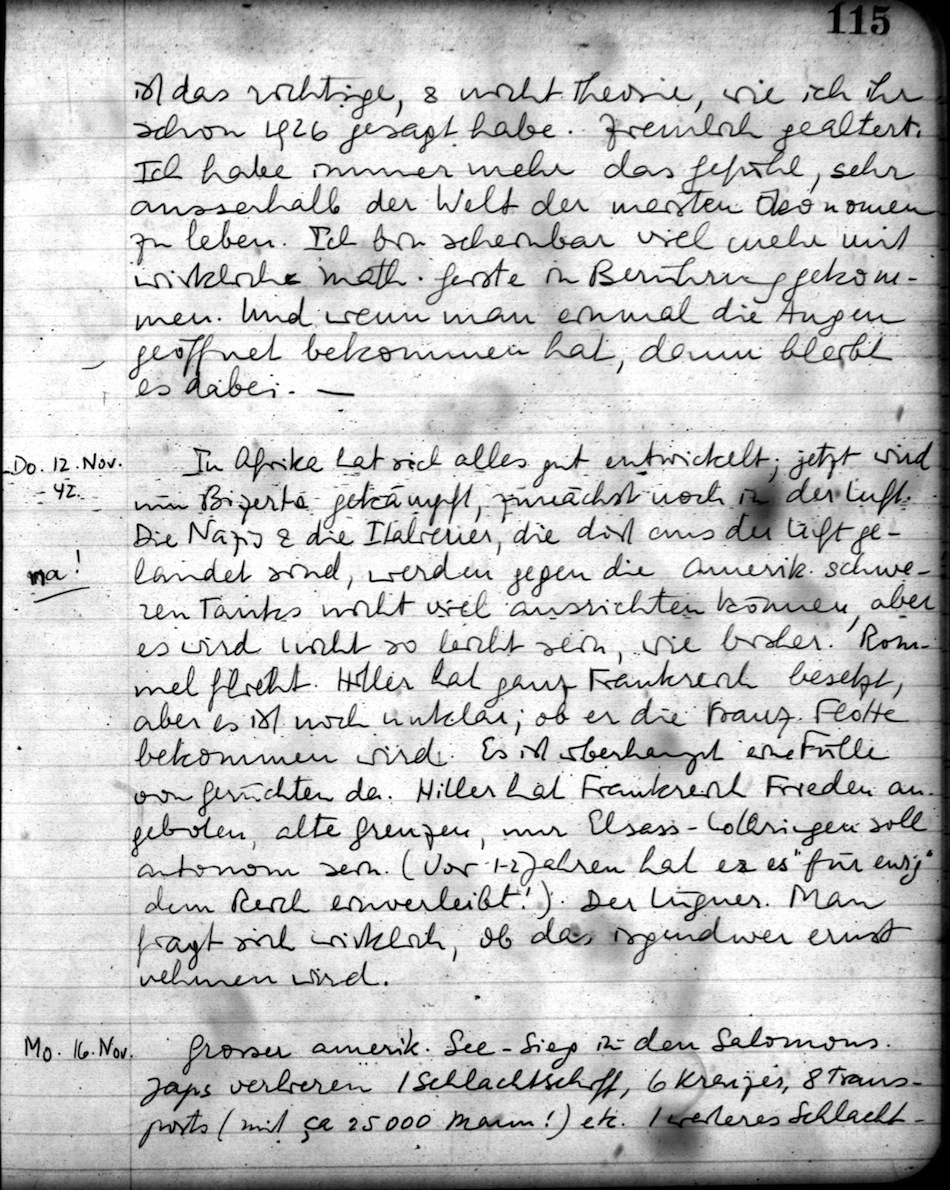 115
ist das richtige, & nicht Theorie, wie ich ihr
schon 1926 gesagt habe. Ziemlich gealtert.
Ich habe immer mehr das Gefühl, sehr
ausserhalb der Welt der meisten Ökonomen
zu leben. Ich bin scheinbar viel mehr mit
wirkliche math. Geiste in Berührung gekom-
men. Und wenn man einmal die Augen
geöffnet bekommen hat, dann bleibt
es dabei. —
Do. 12. Nov.
- 42.
In Afrika hat sich alles gut entwickelt; jetzt wird
um Bizerta gekämpft, zunächst noch in der Luft.
Die Nazis & die Italiener, die dort aus der Luft ge-
na!
landet sind, werden gegen die amerik. schwe-
ren Tanks nicht viel ausrichten können, aber
es wird nicht so leicht sein, wie bisher. Rom-
mel flieht. Hitler hat ganz Frankreich besetzt,
aber es ist noch unklar, ob er die Franz. Flotte
bekommen wird. Es ist überhaupt eine Fülle
von Gerüchten da. Hitler hat Frankreich Frieden an-
geboten, alte Grenzen, nur Elsass-Lothringen soll
autonom sein. (Vor 1-2 Jahren hat er es "für ewig"
dem Reich einverleibt!). Der Lügner. Man
fragt sich wirklich, ob das irgendwer ernst
nehmen wird.
Mo. 16. Nov.
Grosser amerik. See-Sieg in den Salomons.
Japs verlieren 1 Schlachtschiff, 6 Kreuzer, 8 Trans-
ports (mit ça 25000 Mann!) etc. 1 weiteres Schlacht-